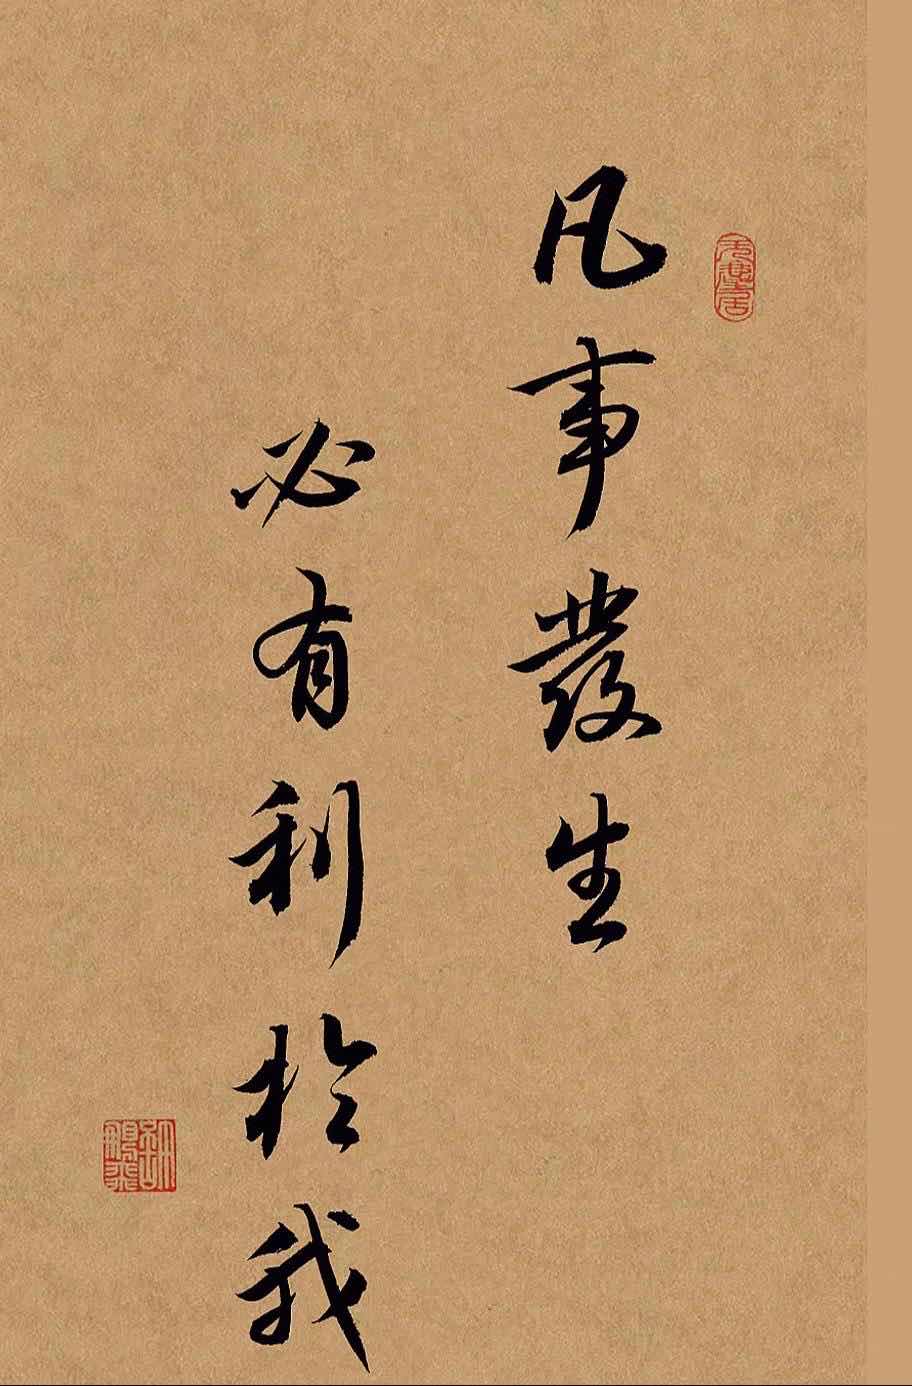 凡事發生
必有利於我